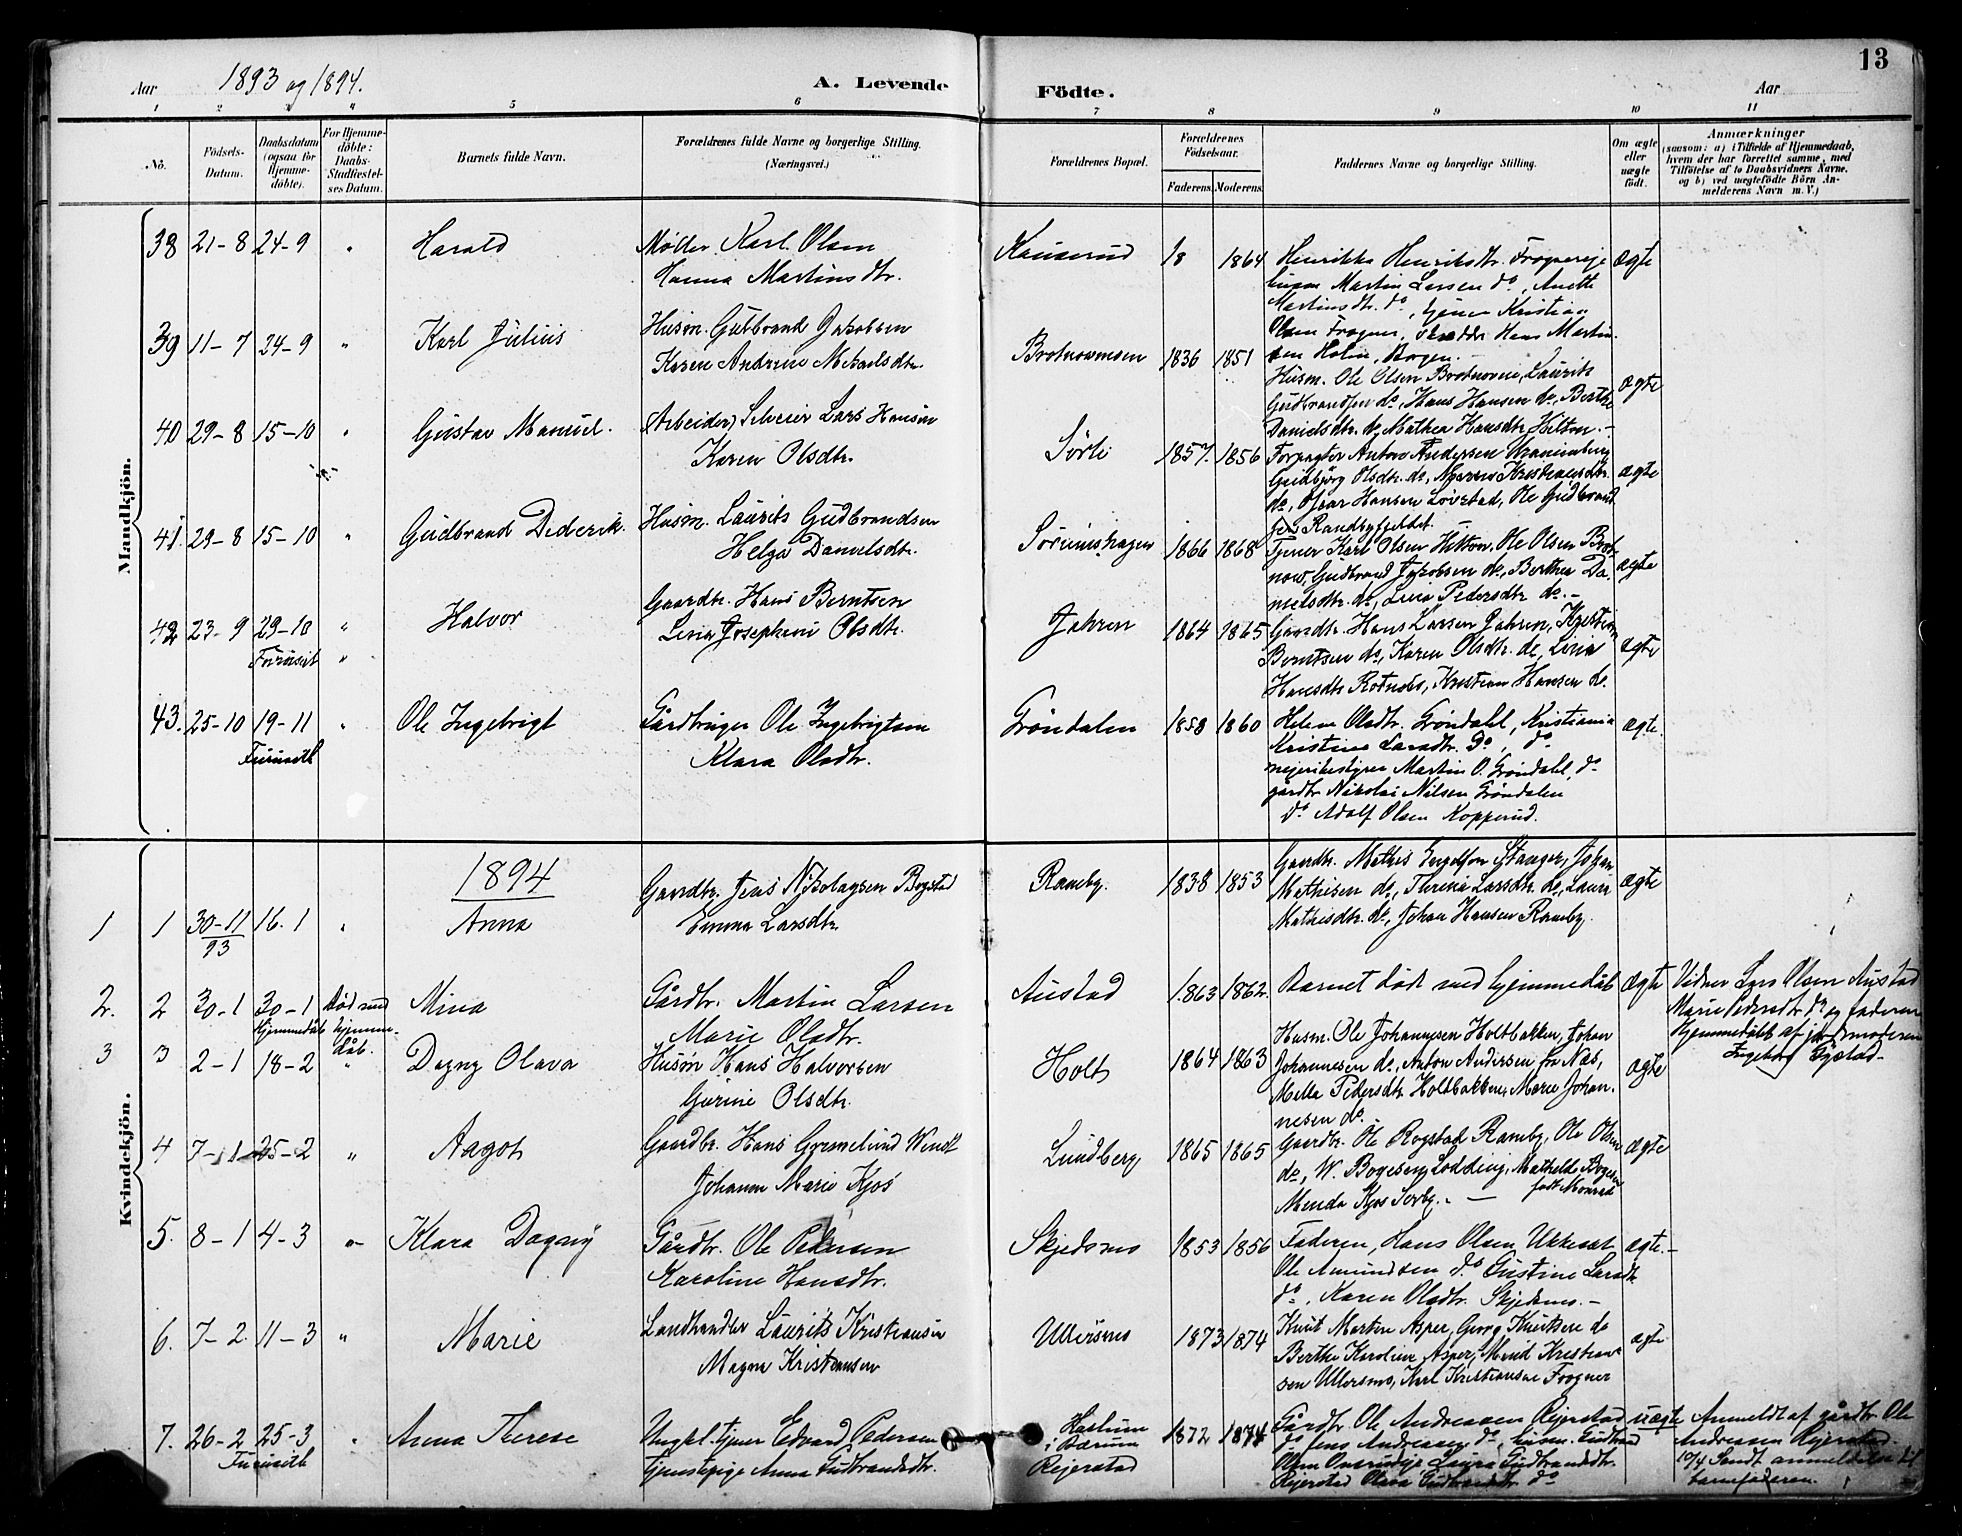 13
Aar 1893 og 1894.
A. Levende Födte.
Aar
1 2 3 4 5 6 7 8 9 10 11
Nô.
Födsels-Datum.
Daabsdatum (ogsaa för Hjemme-döbte).
For Hjemme-döbte: Daabs-Stadfæstel-ses Datum.
Barnets fulde Navn.
Forældrenes fulde Navne og borgerlige Stilling. (Næringsvei.)
Forældrenes Bopæl.
Forældrenes Födselsaar.
Faderens. Moderens.
Faddernes Navne og borgerlige Stilling.
Om ægte eller uægte födt.
Anmærkninger
(saasom: a) i Tilfælde af Hjemmedaab, hvem der har forrettet samme, med Tilföielse af to Daabsvidners Navne. og b) ved uægtefödte Börn An-melderens Navn m. V.)
Mandkjön.
38 21-8 24-9 " Harald
Møller Karl Olsen
Hanna Martinsdtr.
Kauserud 18 1864
Henrikke Henriksdtr. Frogner
Martin Larsen do, Anette
Martinsdtr. do, tjener Kristian
Olsen Frogner, Hans Martin
sen Holm, Bogen.
ægte
39 11-7 24-9 " Karl Julius
Husm. Gudbrand Jakobsen
Karen Andrine Mikaelsdtr.
1836 1851
Husm. Ole Olsen Brotnovne, Laurits
Gudbrandsen do, Hans Hansen do, Berthe
Danielsdtr. do, Mathea Hansdtr. Hilton.-
ægte
40 29-8 15-10 " Gustav Manuel.
Arbeider, Selveier Lars Hansen
Karen Olsdtr.
Sørli 1857. 1856
Forpagter Anton Andersen
Gudbjörg Olsdtr. do, Kristiansdtr.
do, Hansen Lövstad, Ole Gudbrand
sen Randbyfjeldet.
ægte
41. 29-8 15-10 " Gudbrand Diderik.
Husm. Laurits Gudbrandsen
Helga Danielsdtr.
Sörumshagen 1866 1868
Tjener Karl Olsen Hilton, Ole Olsen Brot
now, Gudbrand Jakobsen do, Berthea Da
nielsdtr. do, Lina Pedersdtr. do.-
ægte
42 23-9 29-10 " Halvor
Furuset "
Gaardbr. Hans Berntsen
Lina Josephine Olsdtr.
Jahren 1864 1865
Gaardbr. Hans Larsen Jahren, Kristian
Berntsen do, Karen Olsdtr. do, Lina
Hansdtr. Rotnes, Kristian Hansen do.
ægte
43. 25-10 19-11 " Ole Ingebrigt
Furuseth
Gårdbruger Ole Ingebrigtsen
Klara Olsdtr.
Gröndalen 1858 1860
Helene Olsdtr. Gröndahl, Kristiania
Kristine Larsdtr. Do, do
mejeribestyrer Martin O. Gröndahl, do
gårdbr Nikolai Nilsen Gröndalen
do Adolf Olsen Kopperud.
ægte.
Kvindekjön.
1894
1 1 30-11/93 16.1 " Anna
Gaardbr. Jens Nikolaysen Bogstad
Emma Larsdtr.
Raneby. 1838 1853
Gaardbr. Mathis Engelsen Stanger, Johan
Mathisen do, Therina Larsdtr. do, Laura
Mathisdtr. do, Johan Hansen Raneby.
ægte
2. 2 30-1 30-1 Hjemmedåb Död med hjemme-dåb. Mina
Gårdbr. Martin Larsen
Marie Olsdtr.
Austad 1863 1862.
Barnet dødt med hjemmedåb
ægte
Vidner Lars Olsen Austad
Marie Pedersdtr. do og faderen
Hjemmedöbt af jordmoderen
Ingeborg Gjestad-
3 3 2-1 18-2 " Dagny Olava
Husm Hans Halvorsen
Gurine Olsdtr.
Holts 1864 1863
Husm. Ole Johannesen Holtbakken, Johan
Johannesen do, Anton Andersen fra Næs,
Mella Pedersdtr. Holtbakken, Marie Johan.
nesen do.
ægte
4 7-1 25-2 " Aagot
Gaardbr. Hans Grimelund Wendt
Johanne Marie Kjos
Lundberg 1865 1865
Gaardbr. Ole Rogstad Raneby, Ole Olsen
do, W. Bogesen Lodding, Mathilde Bogesen
født Monrad
Menda Kjos Sørby.-
ægte
5. 8-1 4-3 " Klara Dagny
Gårdbr. Ole Pedersen
Karoline Hansdtr.
Skjedsmo 1853 1856
Faderen, Hans Olsen Ukkesat
Ole Amundsen do Gustine Larsdtr.
do, Karen Olsdtr. Skjedsmo.-
ægte.-
6. 7-2. 11-3 " Marie
Landhandler Laurits Kristiansen
Magna Kristensen
Ullersmo 1873 1874
Knut Martin Asper, Georg Knutsen do
Berthe Karoline Asper, Kristian
sen Ullersmo, Karl Kristiansen Frogner
ægte
7. 26-2 25-3 " Anna Therese
Furuseth
Ungkl. tjener Edvard Pedersen
tjenestepige Anna Gudbrandsdtr.
Haslum i Bærum
Rejerstad
1872 1874
Gårdbr. Ole Andreasen Rejerstad
do Jens Andreasen do, Gudbrand
Olsen, Laura Gudbrandsdtr.
Rejerstad Olava Gudbrandsdtr. do
uægte
Anmeldt af gårdbr. Ole
Andreasen Rejerstad.
10/4 Sendt anmeldelse til
barnefaderen.